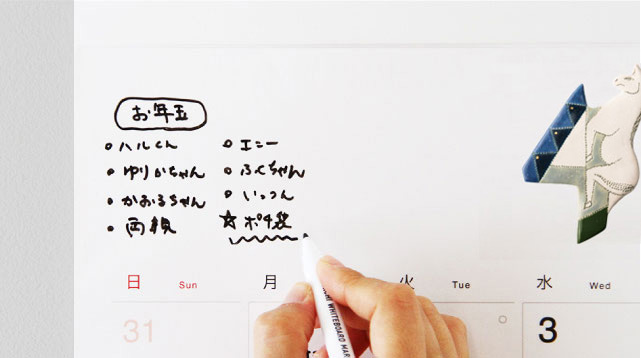 お年玉
ハルくん
ゆりかちゃん
かおるちゃん
両親
エニー
ふくちゃん
いっつん
☆ポチ袋
日 Sun 月 火 Tue 水 Wed
31 3
WHITEBOARD MAR